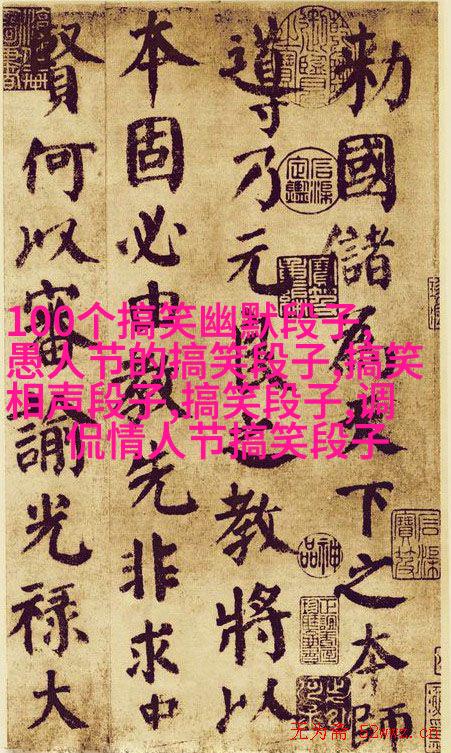 勑國儲為天下之本師
導乃元良之教將以
本固必由教先非求中
賢何以審諭光祿大
100个搞笑幽默段子,
愚人节的搞笑段子,搞笑
相声段子,搞笑段子,调
侃情人节搞笑段子
神品
无为斋 52wwz.cn